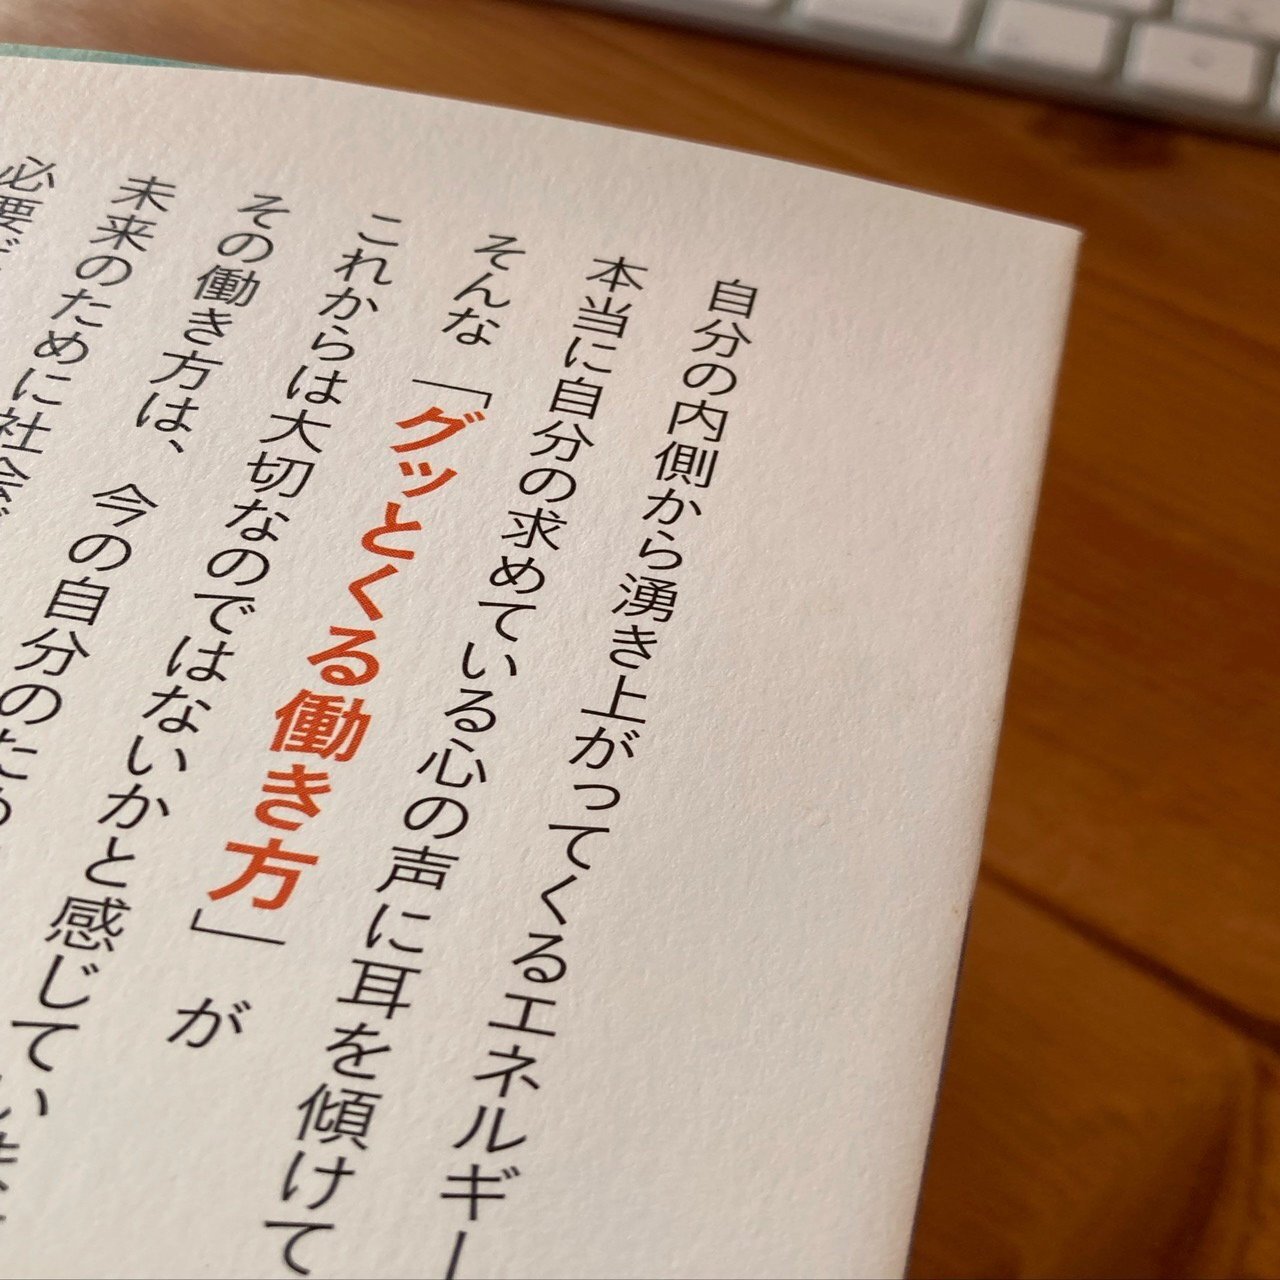 自分の内側から湧き上がってくるエネルギー
本当に自分の求めている心の声に耳を傾けて
そんな「グッとくる働き方」が
これからは大切なのではないかと感じてい
その働き方は、今の自分のため
未来のために社会
必要